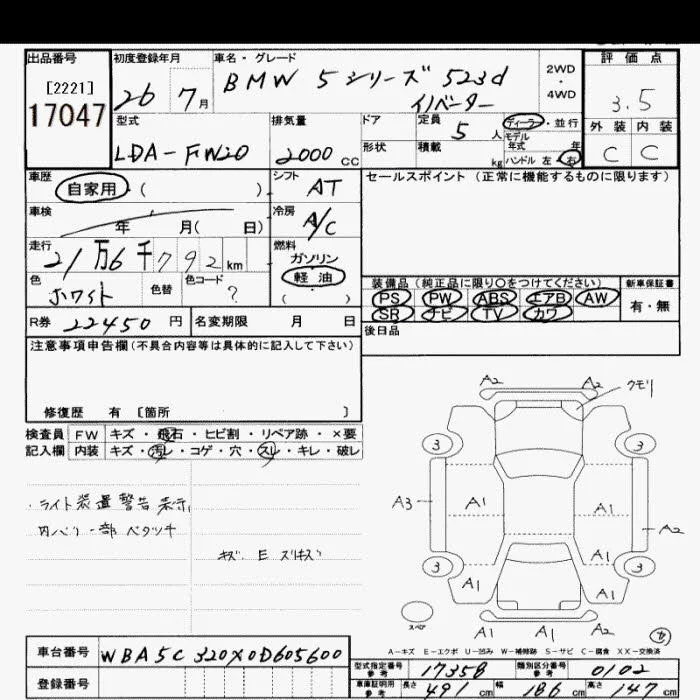 出品番号
[2221]
17047
初度登録年月
26 7月
車名・グレード
BMW 5シリーズ 523d
2WD
・
4WD
評価点
3.5
外装 内装
C C
型式
LDA-FW20
排気量
2000 CC
ドア
形状
定員
5 人
積載
kg
ディーラー・並行
モデル
年式 年
ハンドル 左・右
車歴
自家用 ( )
シフト
AT
セールスポイント (正常に機能するものに限ります)
車検
年 月( 日)
冷房
A/C
走行
21万6千792km
燃料
ガソリン
軽油
( )
色
ホワイト
色替
色コード
?
装備品 (純正品に限り○をつけてください)
PS PW ABS エアB AW
SR ナビ TV カワ
新車保証書
有・無
R券 22450 円
名変期限 月 日
後日品
注意事項申告欄(不具合内容等は具体的に記入して下さい)
修復歴 有 [箇所 ]
検査員 FW キズ・飛石・ヒビ割・リペア跡・×要
記入欄 内装 キズ・汚レ・コゲ・穴・スレ・キレ・破レ
・ライト装置警告表示
内バリ一部ベタツキ
キズ E ズリキズ
A2 A2 クモリ
3 3
A3 A1 A1 A2
A1
3 3
A1 A1
A2 A1 A2
スペア
A-キズ E-エクボ U-凹み W-補修跡 S-サビ C-腐食 XX-交換済
車台番号
WBA5C320X0D605600
登録番号
型式指定番号
参考
17358
類別区分番号
参考
0102
車庫証明用
参考
長さ 491 cm 幅 186 cm 高さ 147 cm